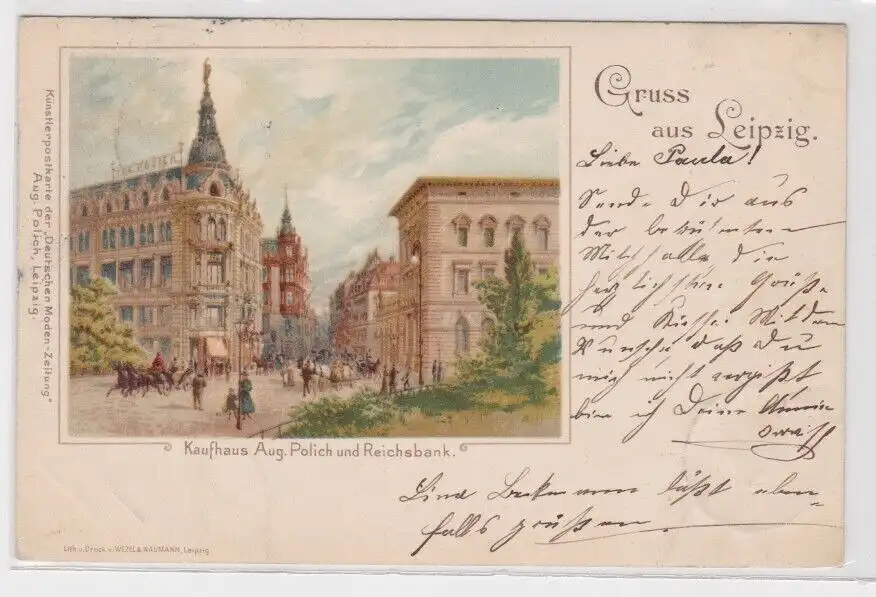 Gruss
aus Leipzig.
Liebe Paula!
Sende Dir aus
der berühmten
Milchhalle die
herzlichsten Grüße
und Küsse. Mit dem
Wunsche daß Du
mich nicht vergißt
bin ich Deine
Lina Beckmann läßt eben-
falls grüßen.
AUG. POLICH
Kaufhaus Aug. Polich und Reichsbank.
Künstlerpostkarte der „Deutschen Moden-Zeitung"
Aug. Polich, Leipzig.
Lith. u. Druck v. WEZEL & NAUMANN, Leipzig